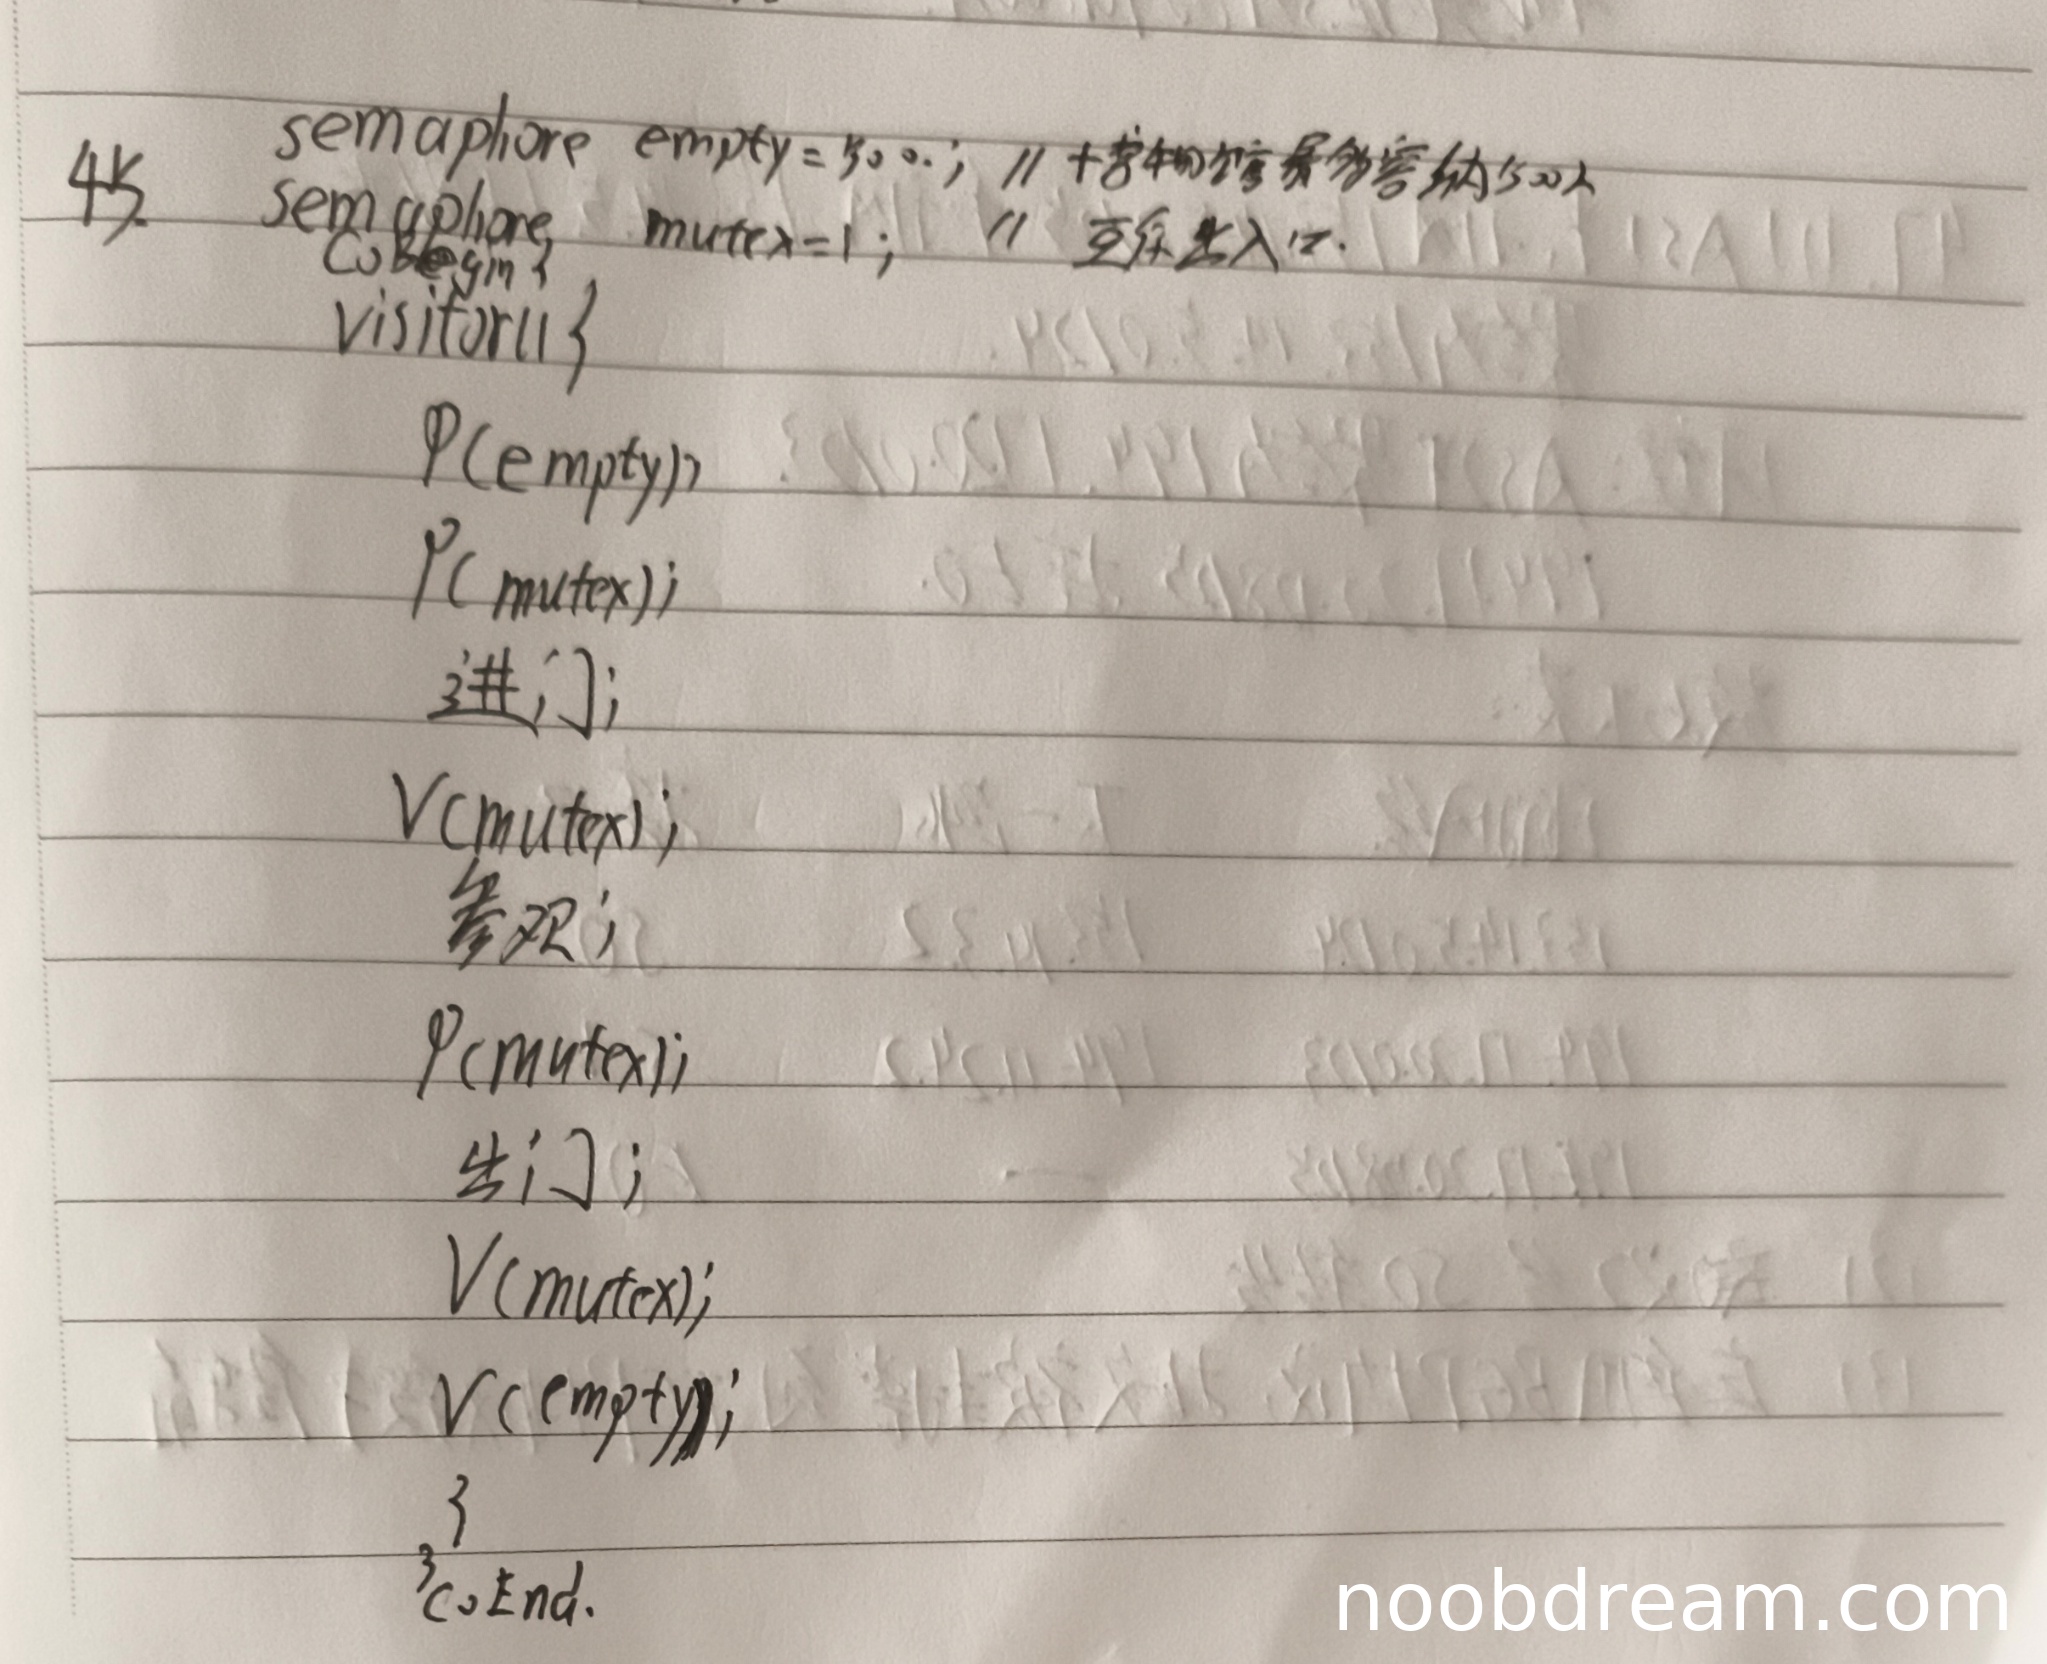 45. semaphore empty=500; // 博物馆最多容纳500人
semaphore mutex=1; // 互斥出入口.
CoBegin{
visitor(){
P(empty);
P(mutex);
进门;
V(mutex);
参观;
P(mutex);
出门;
V(mutex);
V(empty);
}
}CoEnd.
noobdream.com